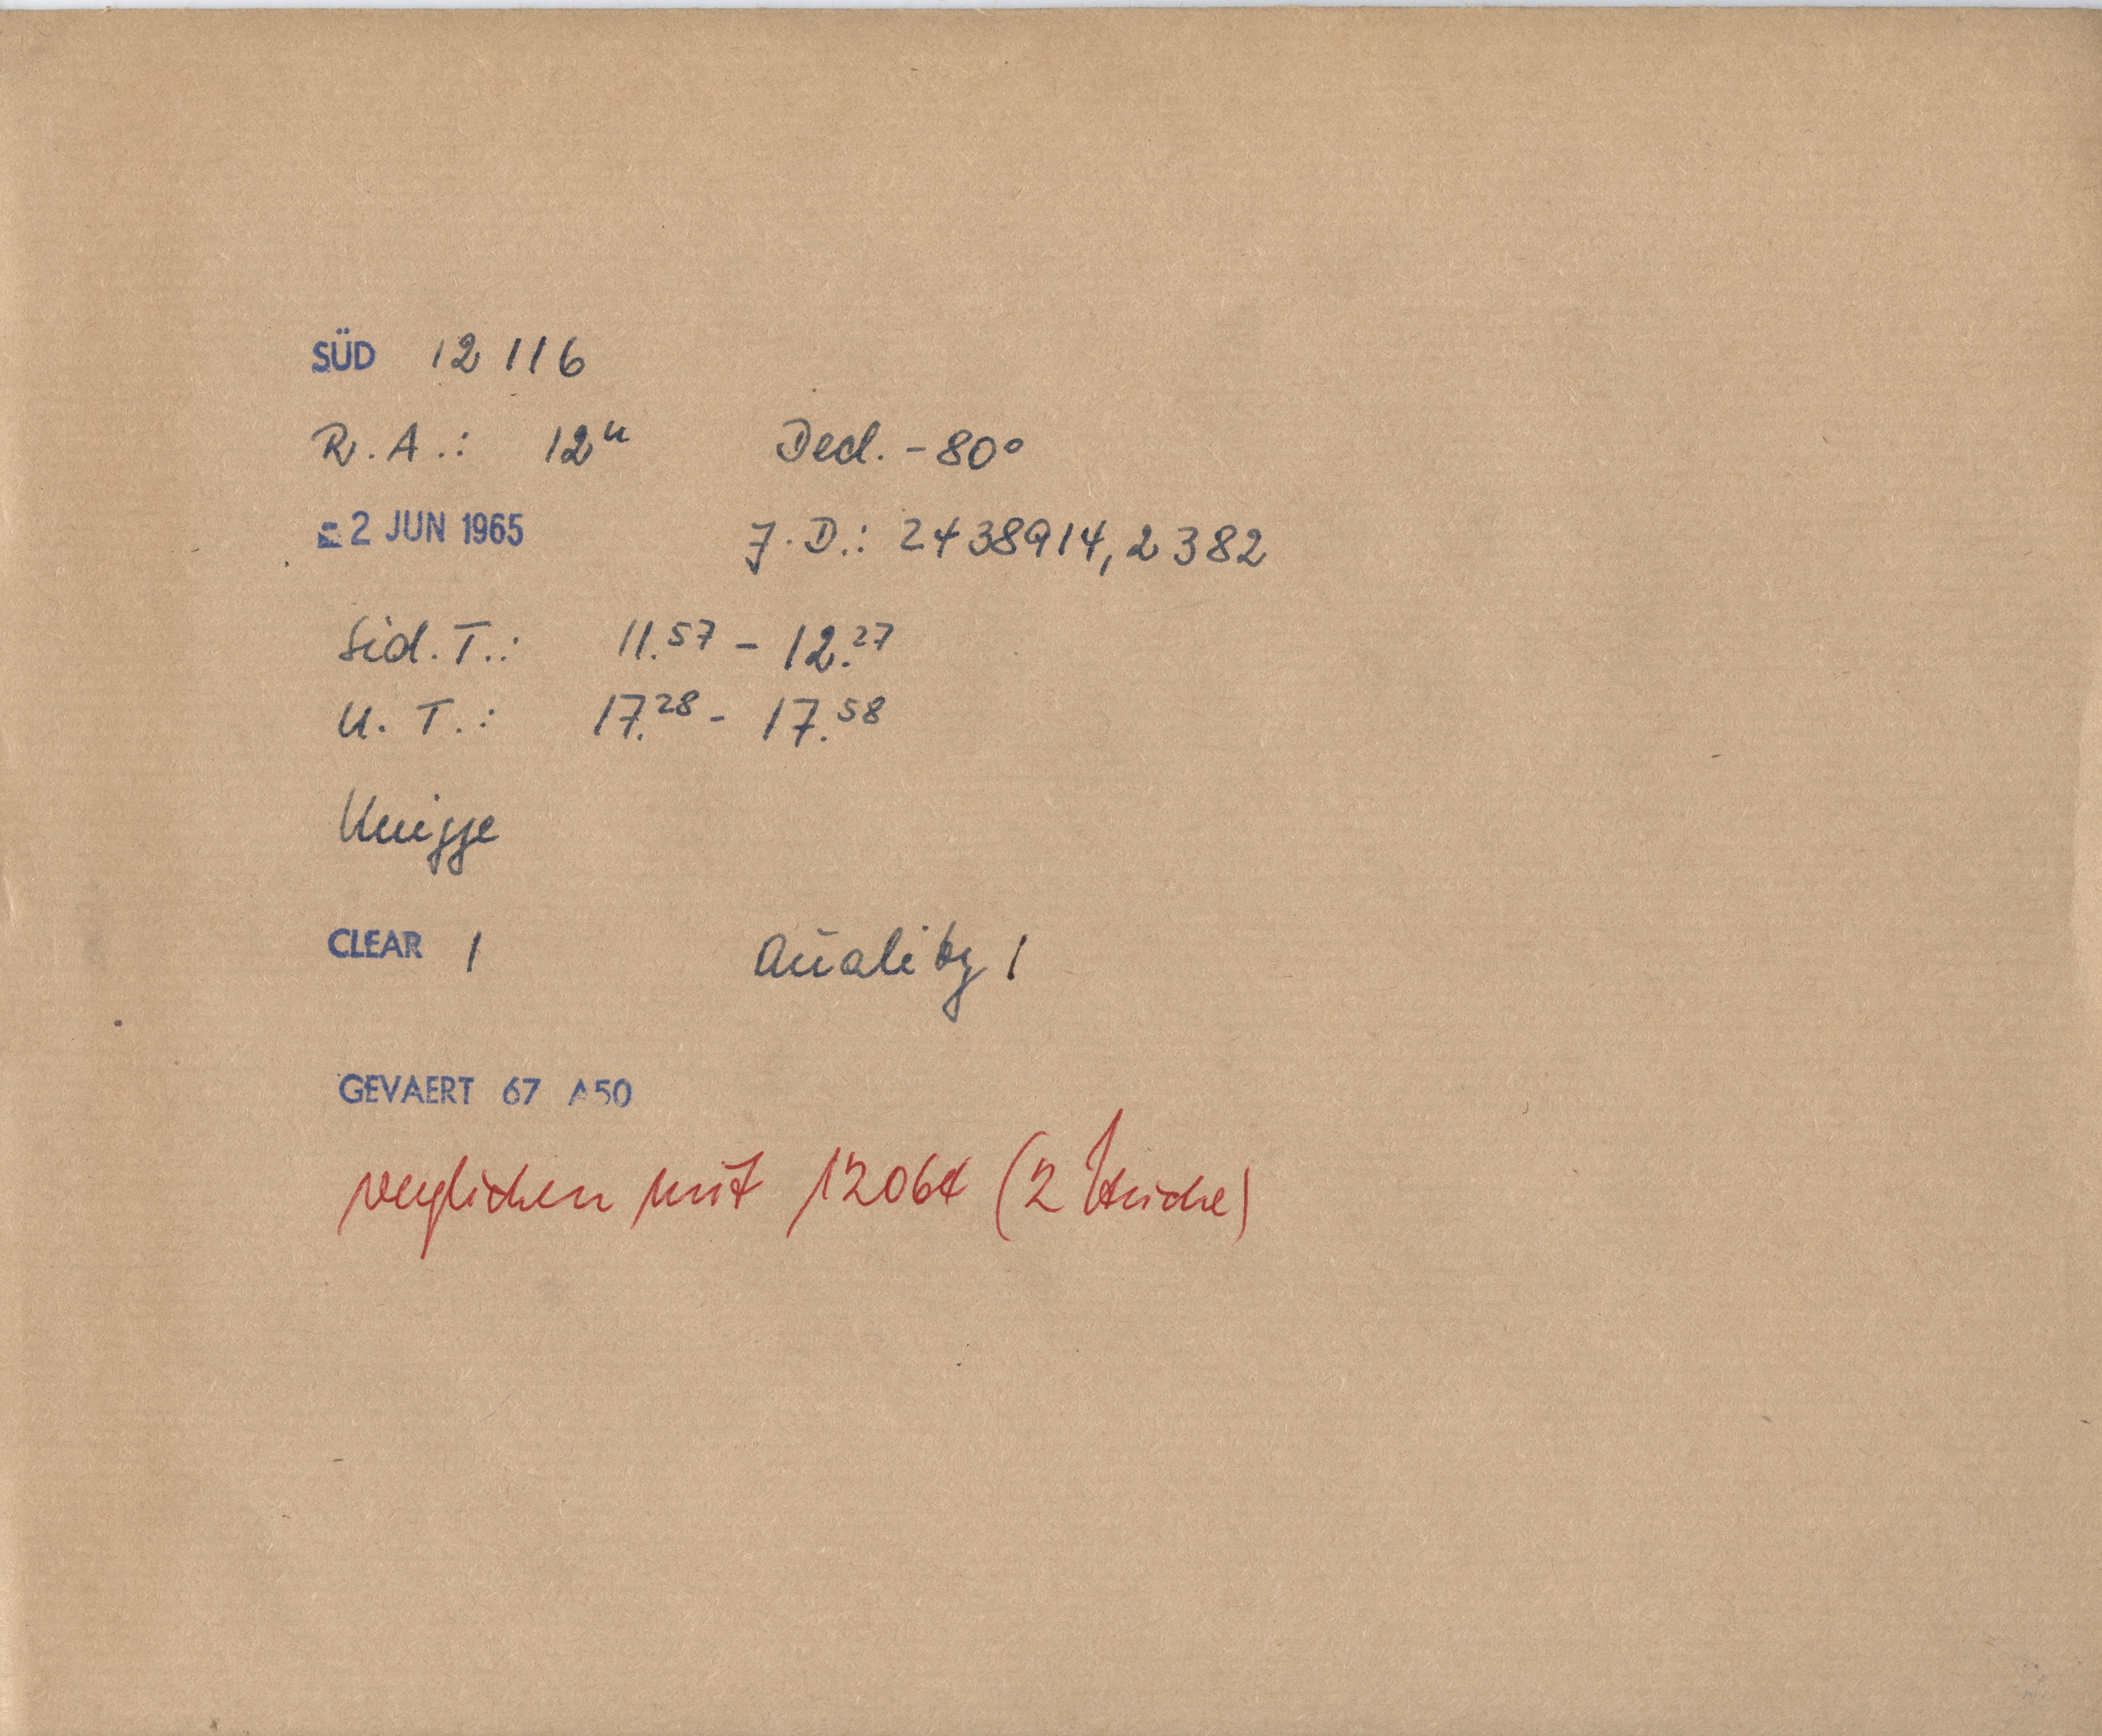 SÜD 12 116
R.A.: 12ʰ Decl. -80°
2 JUN 1965 J.D.: 2438914,2382
Sid.T.: 11.57 - 12.27
U.T.: 17.28 - 17.58
Knigge
CLEAR 1 Quality 1
GEVAERT 67 A50
verglichen mit 12064 (2 Striche)